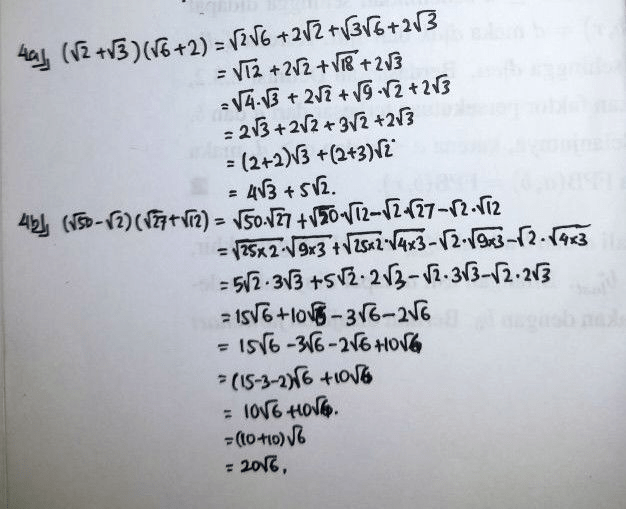 4a), (√2 + √3)(√6 + 2) = √2√6 + 2√2 + √3√6 + 2√3
= √12 + 2√2 + √18 + 2√3
= √4·√3 + 2√2 + √9·√2 + 2√3
= 2√3 + 2√2 + 3√2 + 2√3
= (2+2)√3 + (2+3)√2
= 4√3 + 5√2.
4b), (√50 - √2)(√27 + √12) = √50·√27 + √50·√12 - √2·√27 - √2·√12
= √25x2·√9x3 + √25x2·√4x3 - √2·√9x3 - √2·√4x3
= 5√2·3√3 + 5√2·2√3 - √2·3√3 - √2·2√3
= 15√6 + 10√6 - 3√6 - 2√6
= 15√6 - 3√6 - 2√6 + 10√6
= (15-3-2)√6 + 10√6
= 10√6 + 10√6.
= (10+10)√6
= 20√6,